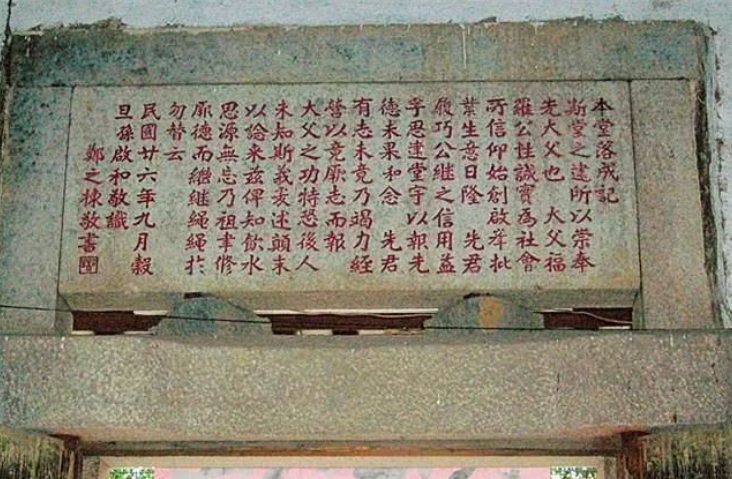 本堂落成記
斯堂之建所以崇奉
先大父也 大父福
羅公性誠實為社會
所信仰始創啟峯批
業生意日隆 先君
殿巧公繼之信用益
孚思建堂宇以報先
德未果和念 先君
有志未竟乃竭力經
營以竟厥志而報
大父之功特恐後人
未知斯義爰述顛末
以諗來茲俾知飲水
思源無忘乃祖聿修
厥德而繼繼繩繩於
勿替云
民國廿六年九月穀
旦孫啟和敬識
鄭之棟敬書